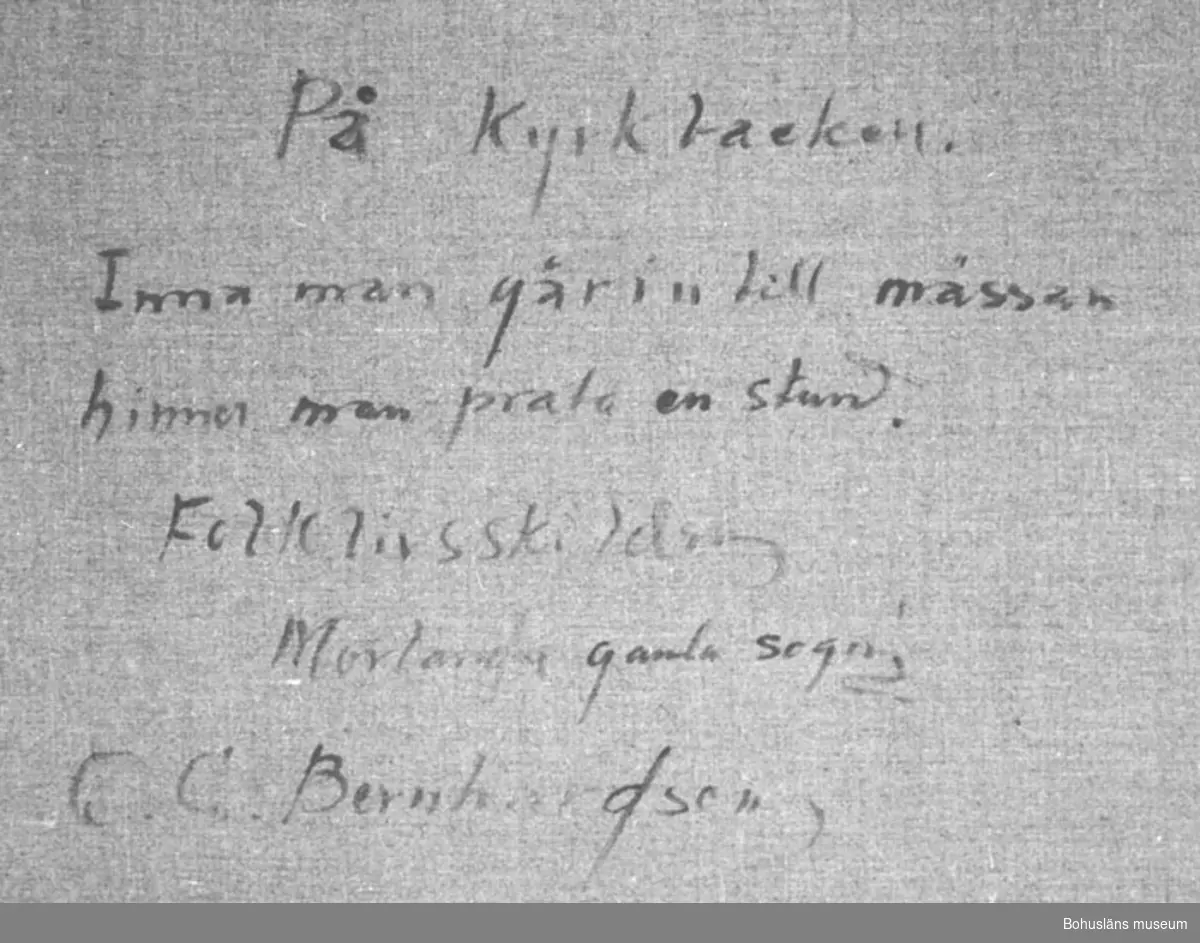 På Kyrkbacken.
Inna man går in till mässan
hinner man prata en stund.
Folklivsskildring
Morlanda gamla sogn,
C. C. Bernhardson,
Bohusläns museum